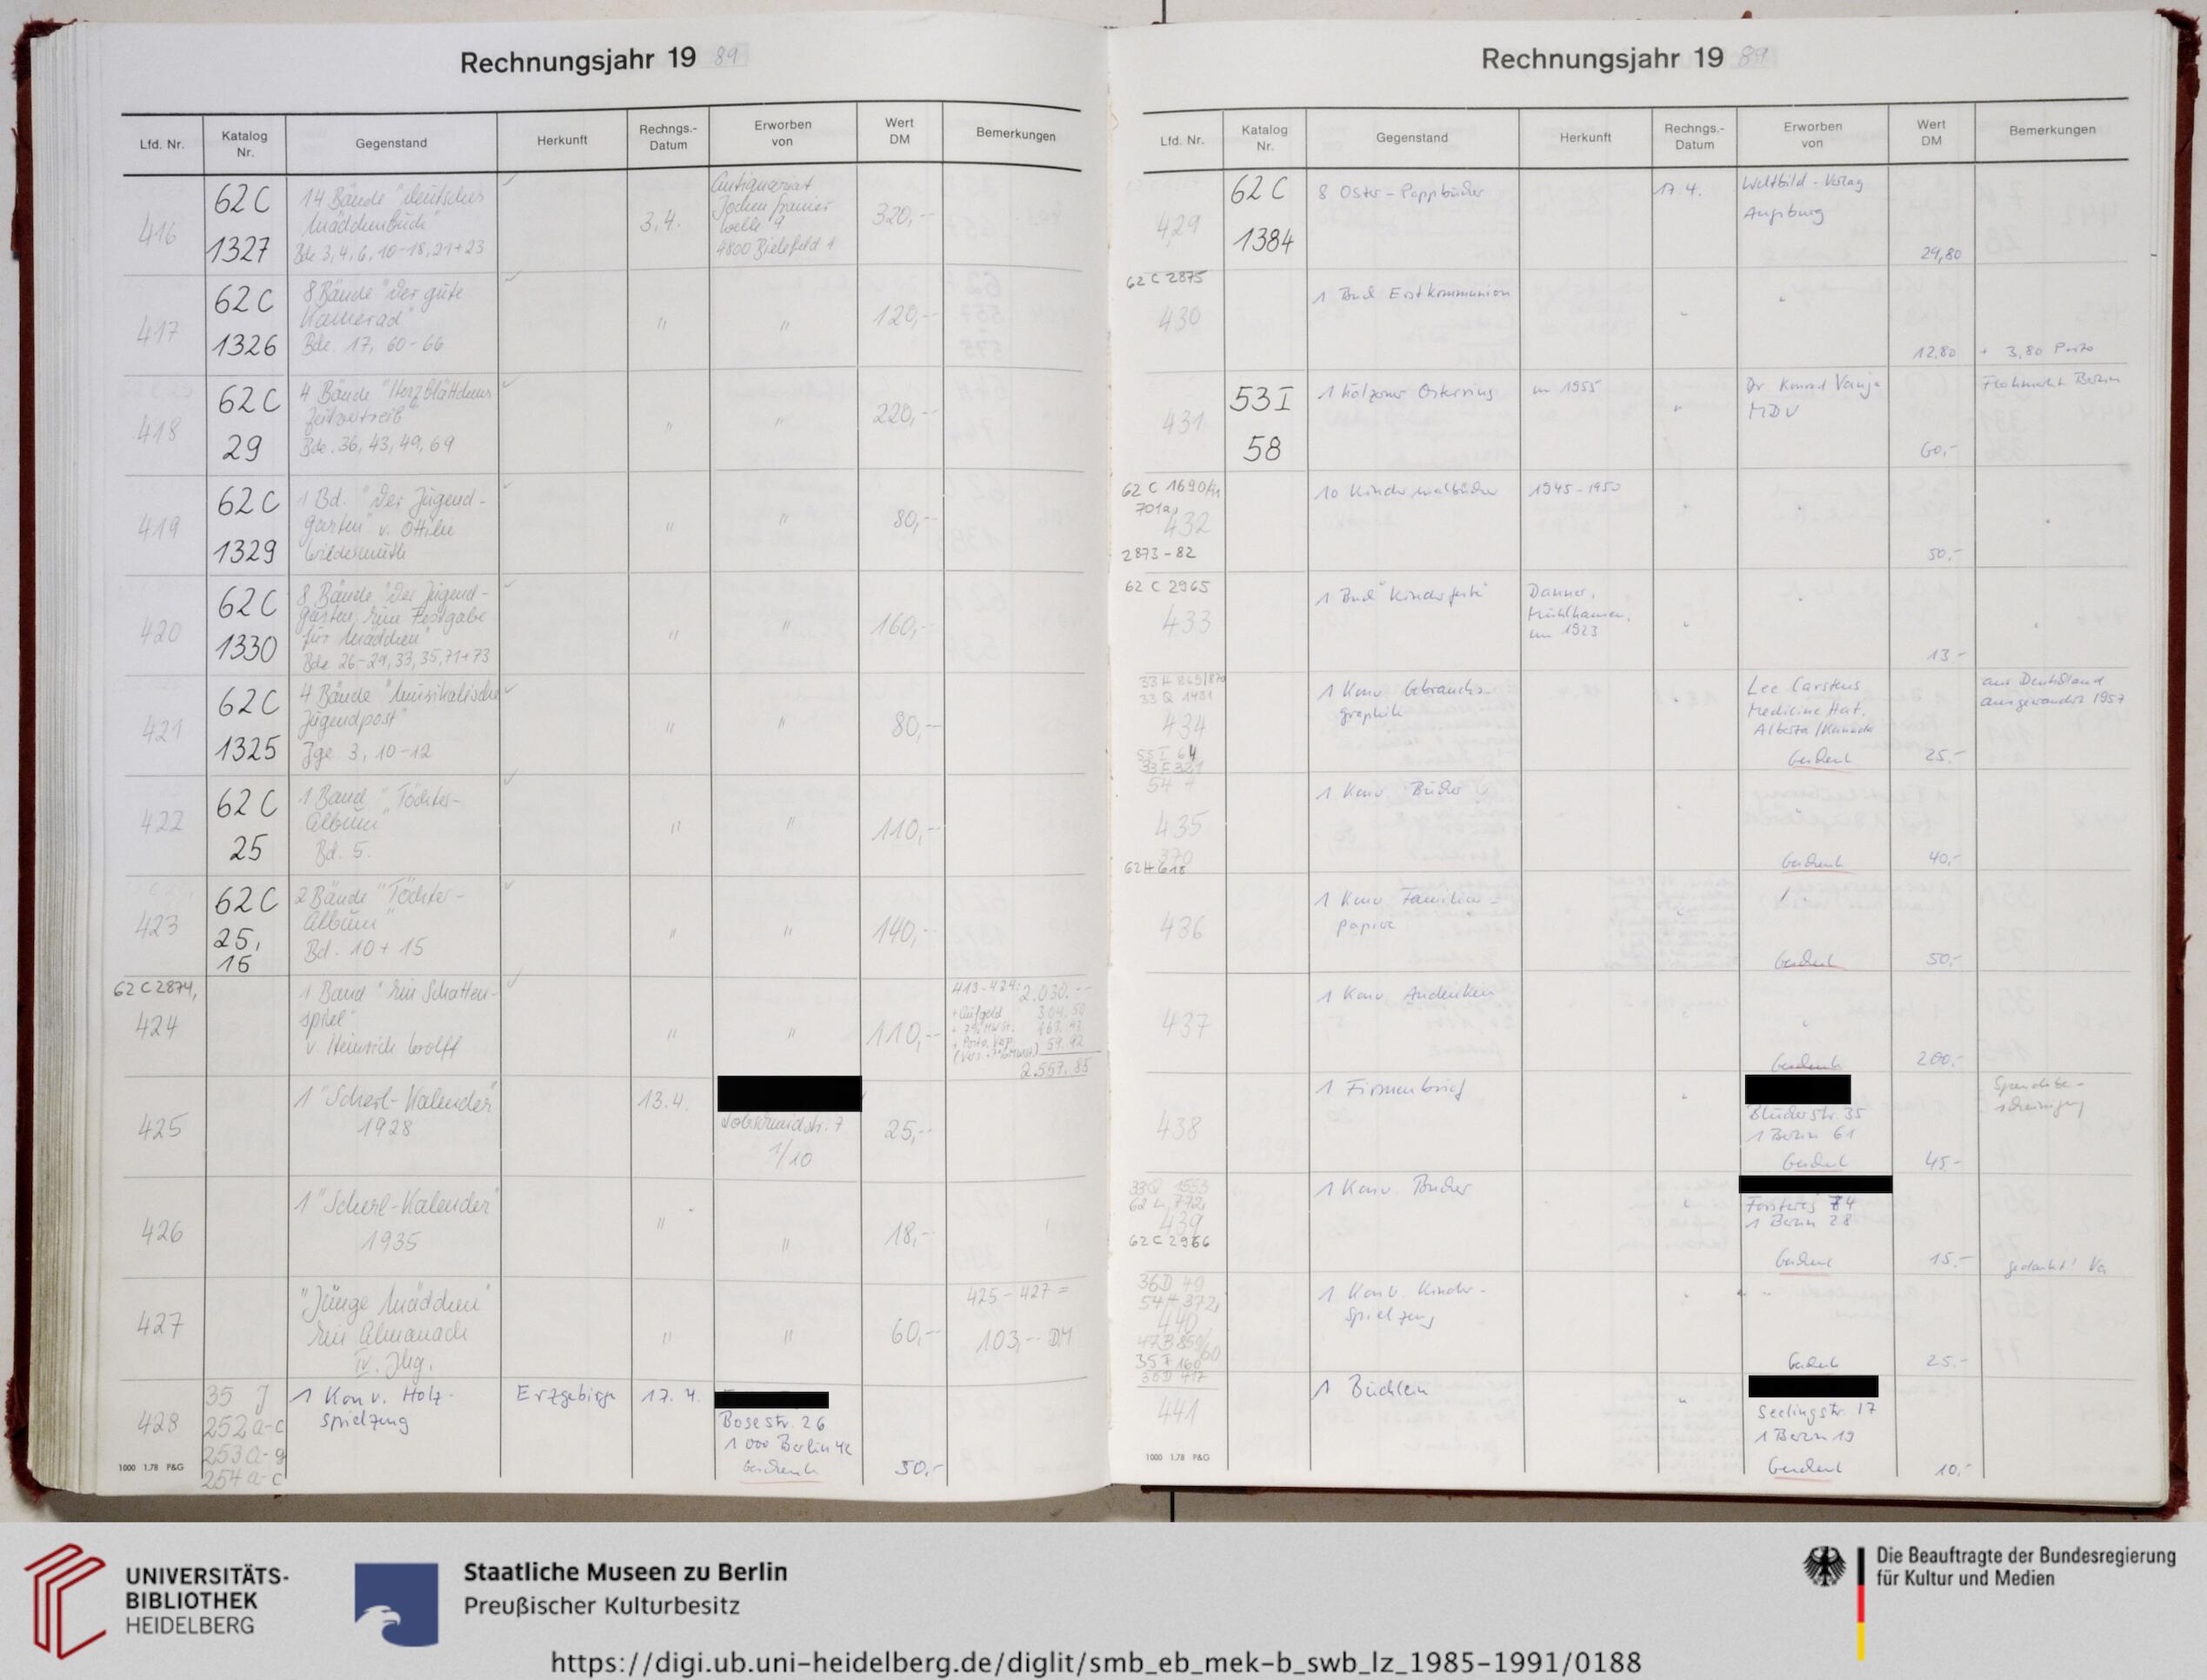 Rechnungsjahr 19 89
Lfd. Nr.
Katalog Nr.
Gegenstand
Herkunft
Rechngs.-Datum
Erworben von
Wert DM
Bemerkungen
416
62 C
1327
14 Bände "Deutsches
Mädchenbuch"
Bde 3, 4, 6, 10-18, 21+23
3.4.
Antiquariat
Jochen
Welle 9
4800 Bielefeld 1
320,--
417
62 C
1326
8 Bände "Der gute
Kamerad"
Bde 17, 60-66
"
"
120,--
418
62 C
29
4 Bände "Herzblättchens
Zeitvertreib"
Bde. 36, 43, 49, 69
"
"
220,--
419
62 C
1329
1 Bd. "Der Jugend-
garten" v. Ottilie
Wildermuth
"
"
80,--
420
62 C
1330
8 Bände "Der Jugend-
garten, eine Festgabe
für Mädchen"
Bde 26-29, 33, 35, 71+73
"
"
160,--
421
62 C
1325
4 Bände "Musikalische
Jugendpost"
Jge 3, 10-12
"
"
80,--
422
62 C
25
1 Band "Töchter-
Album"
Bd. 5.
"
"
110,--
423
62 C
25,
16
2 Bände "Töchter-
Album"
Bd. 10 + 15
"
"
140,--
62 C 2874,
424
1 Band "Ein Schatten-
spiel"
v. Heinrich Wolff
"
"
110,--
413-424: 2.030.--
+ Aufgeld 304.50
+ 7% MwSt. 163.43
+ Porto, Verp.
59.92
2.557,85
425
1 "Scherl-Kalender"
1928
13.4.
1/10
25,--
426
1 "Scherl-Kalender"
1935
"
"
18,--
427
"Junge Mädchen"
Ein Almanach
IV. Jhg.
"
"
60,--
425-427 =
103,-- DM
428
35 J
252a-c
253a-g
254a-c
1 Konv. Holz-
spielzeug
Erzgebirge
17. 4.
Bosestr. 26
1000 Berlin 42
Geschenk
50,-
1000 1.78 P&G
Rechnungsjahr 19 89
Lfd. Nr.
Katalog Nr.
Gegenstand
Herkunft
Rechngs.-Datum
Erworben von
Wert DM
Bemerkungen
429
62 C
1384
8 Oster-Pappbücher
17.4.
Weltbild-Verlag
Augsburg
29,80
62 C 2875
430
1 Buch Erstkommunion
"
"
12,80
+ 3,80 Porto
431
53 I
58
1 hölzerner Osterring
um 1955
"
Dr Konrad Vanja
MDV
60,-
Flohmarkt Berlin
62 C 1690/
701a,
432
2873-82
10 Kindermalbücher
1945-1950
50,-
62 C 2965
433
1 Buch "Kinderfeste"
Danner,
Mühlhausen,
um 1923
13.-
33 H 869/870
33 Q 1431
434
53 I 64
33 E 321
1 Konv. Gebrauchs-
graphik
Lee Carstens
Medicine Hat,
Alberta/Kanada
Geschenk
25.-
aus Deutschland
ausgewandert 1957
435
62 H 618
1 Konv. Bücher
Geschenk
40,-
436
1 Konv. Familien-
papiere
Geschenk
50,-
437
1 Konv. Andenken
Geschenk
200.-
438
1 Firmenbrief
Blücherstr. 35
1 Berlin 61
Geschenk
45,-
Spendenbe-
scheinigung
33 Q 1553
62 L 772,
439
62 C 2966
1 Konv. Bücher
1 Berlin 28
Geschenk
15.-
gedankt! Va
36 D 49
54 H 372,
440
47 B 859/60
35 F 160
36 D 417
1 Konv. Kinder-
spielzeug
Geschenk
25.-
441
1 Büchlein
Seelingstr. 17
1 Berlin 19
Geschenk
10,-
1000 1.78 P&G
UNIVERSITÄTS-
BIBLIOTHEK
HEIDELBERG
Staatliche Museen zu Berlin
Preußischer Kulturbesitz
Die Beauftragte der Bundesregierung
für Kultur und Medien
https://digi.ub.uni-heidelberg.de/diglit/smb_eb_mek-b_swb_lz_1985-1991/0188